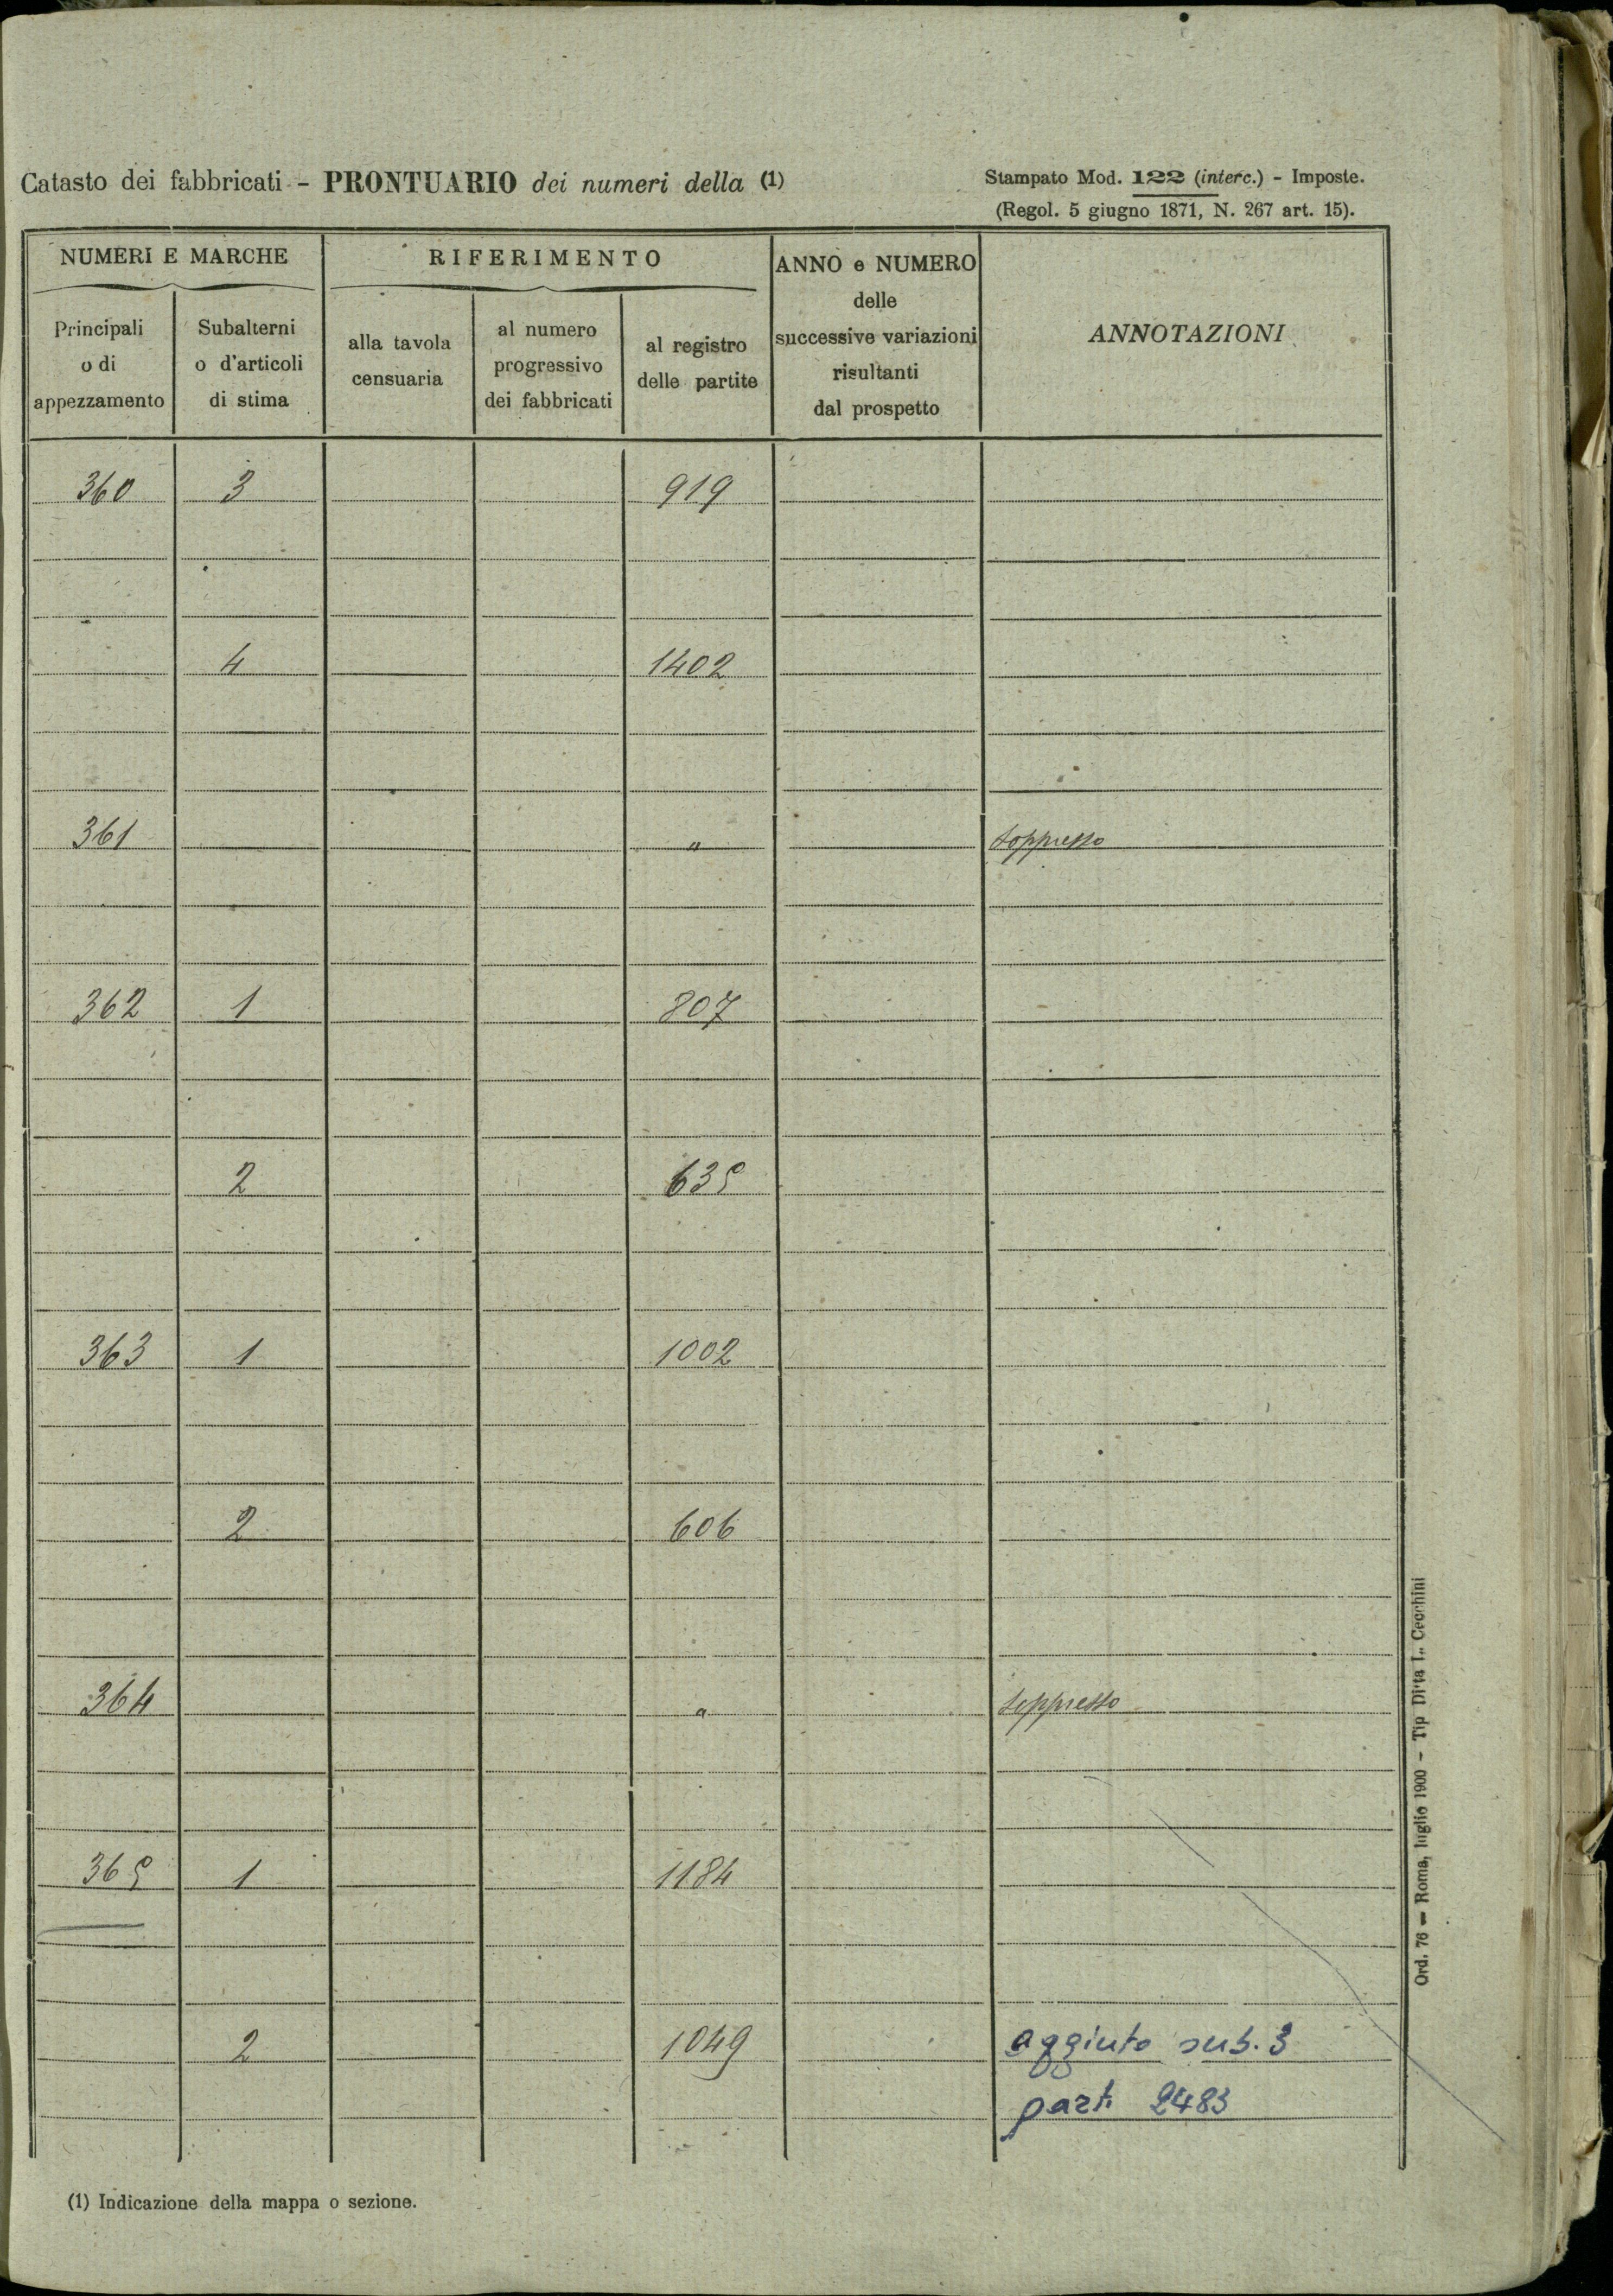 Catasto dei fabbricati - PRONTUARIO dei numeri della (1)
Stampato Mod. 122 (interc.) - Imposte.
(Regol. 5 giugno 1871, N. 267 art. 15).
NUMERI E MARCHE
RIFERIMENTO
ANNO e NUMERO
delle
successive variazioni
risultanti
dal prospetto
ANNOTAZIONI
Principali
o di
appezzamento
Subalterni
o d'articoli
di stima
alla tavola
censuaria
al numero
progressivo
dei fabbricati
al registro
delle partite
360 3 919
4 1402
361 " soppresso
362 1 807
2 635
363 1 1002
2 606
364 " soppresso
365 1 1184
2 1049 aggiuto sub. 3
part. 2483
(1) Indicazione della mappa o sezione.
Ord. 76 — Roma, luglio 1900 - Tip Ditta L. Cecchini